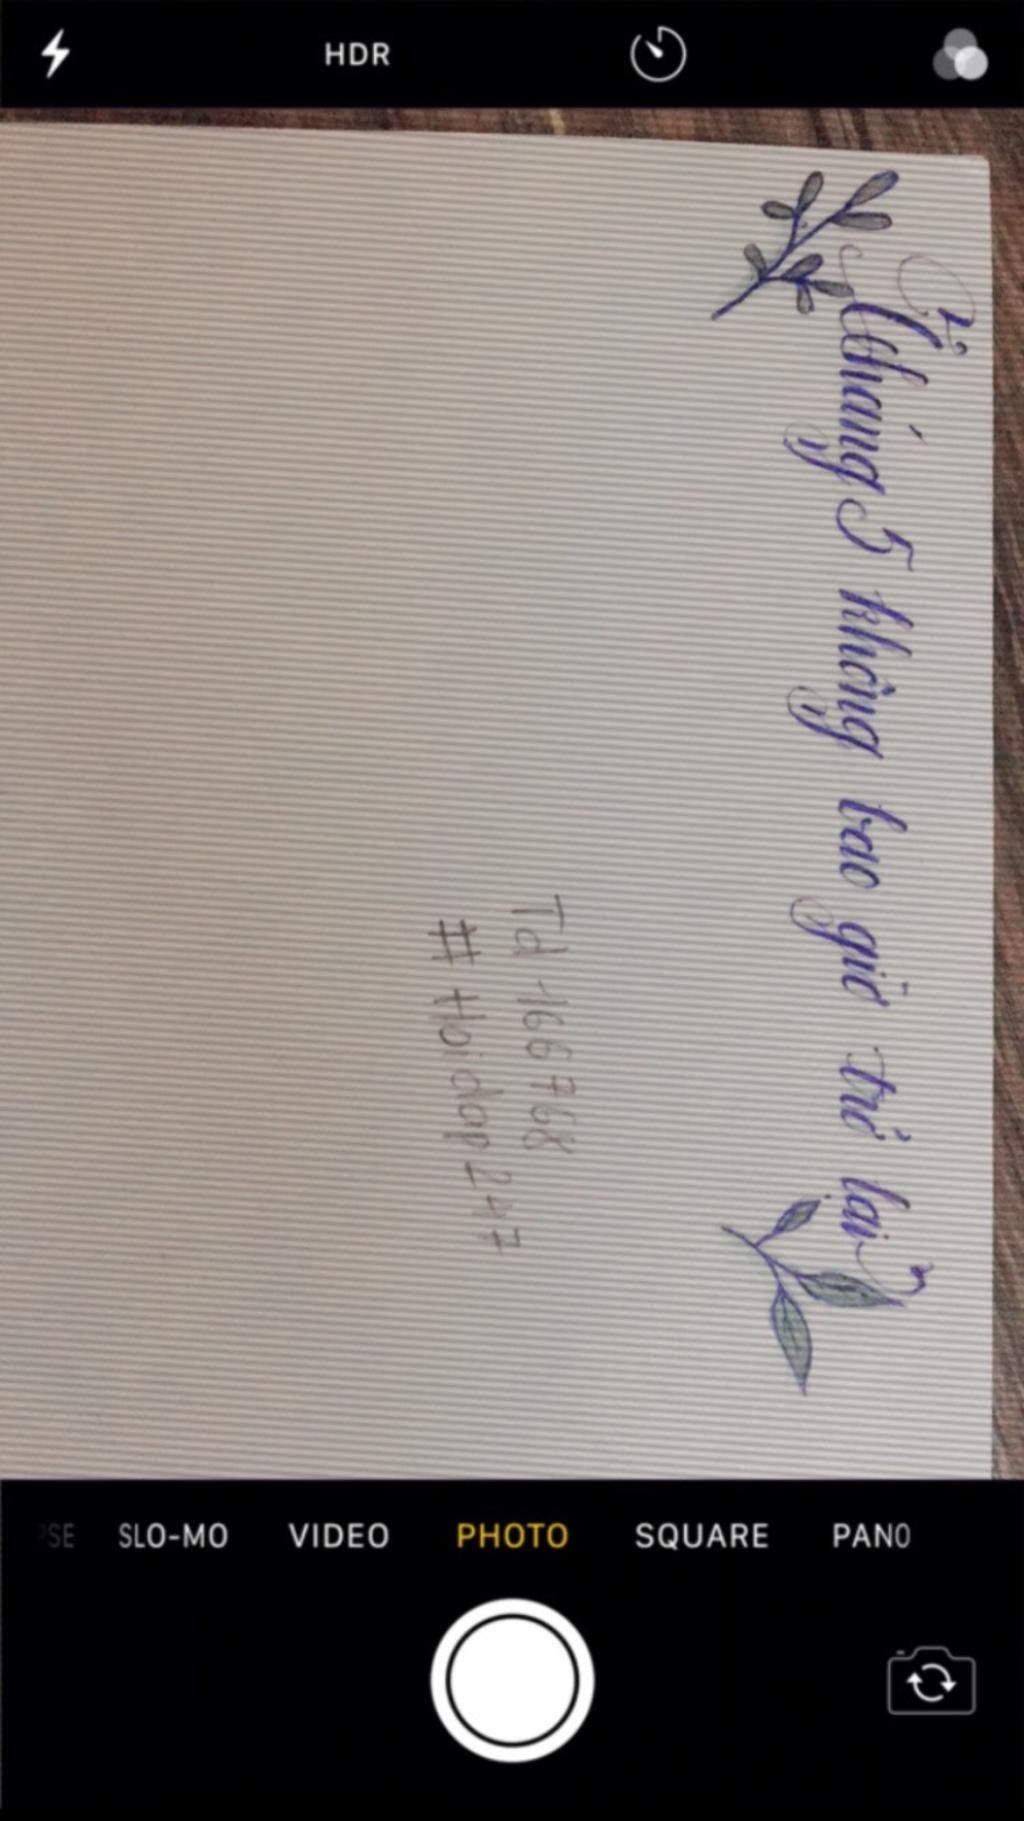 HDR
Tháng 5 không bao giờ trở lại
Td 166768
#Hoidap247
SLO-MO VIDEO PHOTO SQUARE PANO